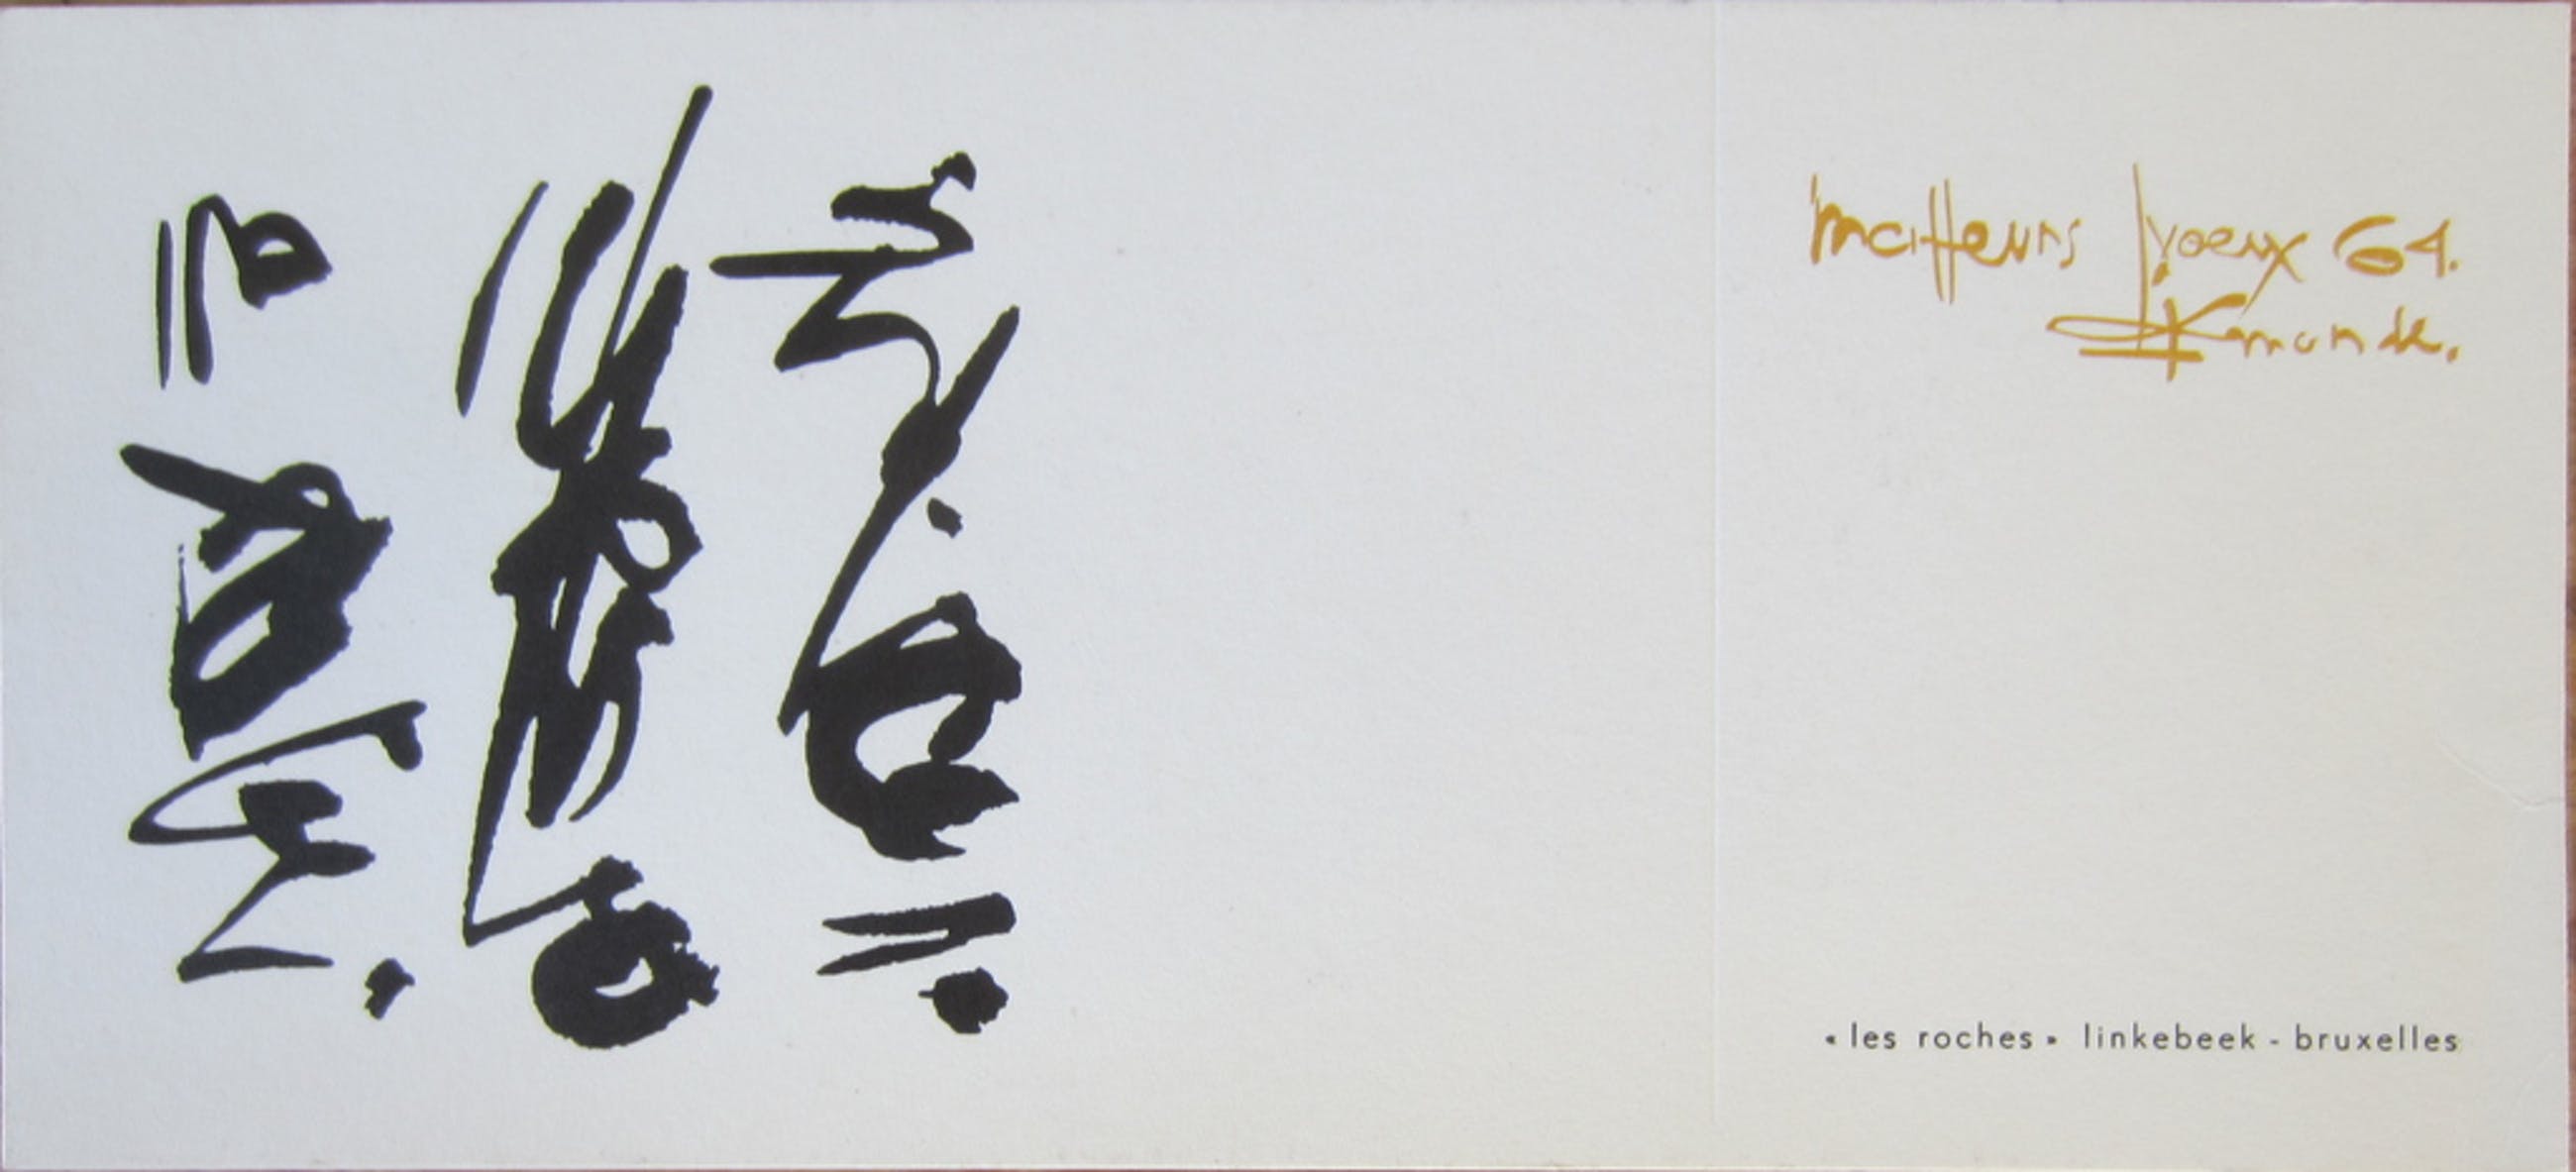 meilleurs voeux 64.
«les roches» linkebeek - bruxelles